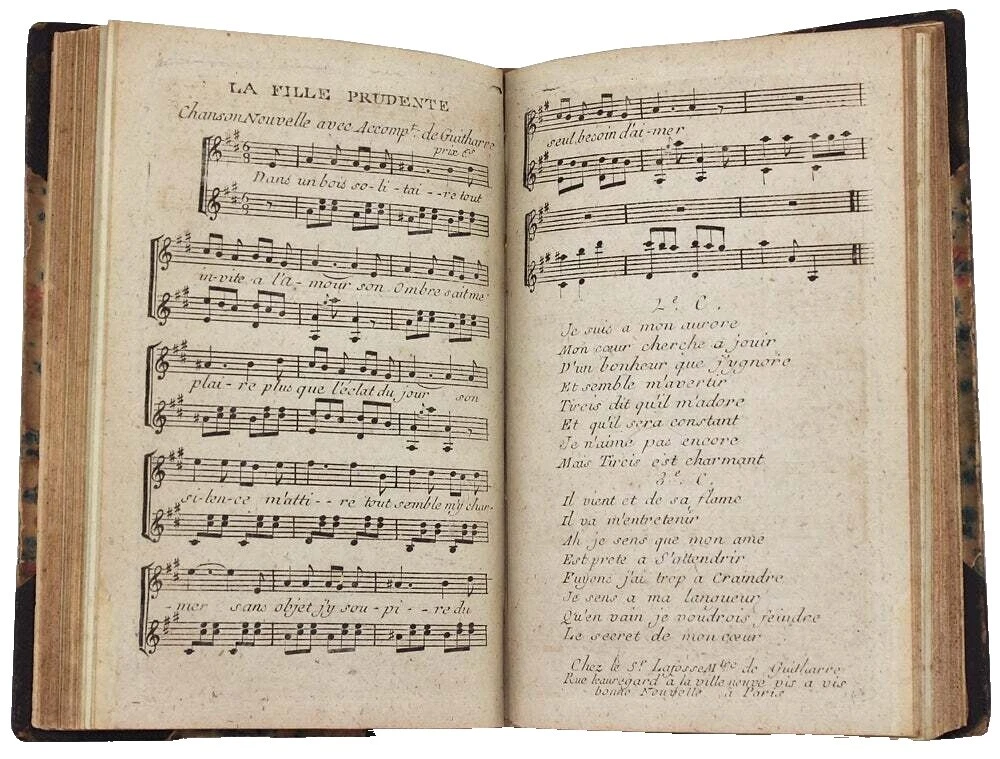 LA FILLE PRUDENTE
Chanson Nouvelle avec Accompt. de Guitharre
prix 6s
Dans un bois so-li-tai--re tout
in-vite a l'a-mour son Ombre sait me
plai-re plus que l'éclat du jour son
si-len-ce m'atti--re tout semble m'y char-
-mer sans objet j'y sou-pi--re du
seul besoin d'ai-mer
2e. C.
Je suis a mon aurore
Mon cœur cherche a jouir
D'un bonheur que j'ygnore
Et semble m'avertir
Tircis dit qu'il m'adore
Et qu'il sera constant
Je n'aime pas encore
Mais Tircis est charmant
3e. C.
Il vient et de sa flame
Il va m'entretenir
Ah je sens que mon ame
Est prete a S'attendrir
Fuyons j'ai trop a Craindre
Je sens a ma langueur
Qu'en vain je voudrois feindre
Le secret de mon cœur
Chez le Sr. Lafosse Mtre de Guitharre
Rue beauregard a la ville neuve vis a vis
bonne Nouvelle a Paris